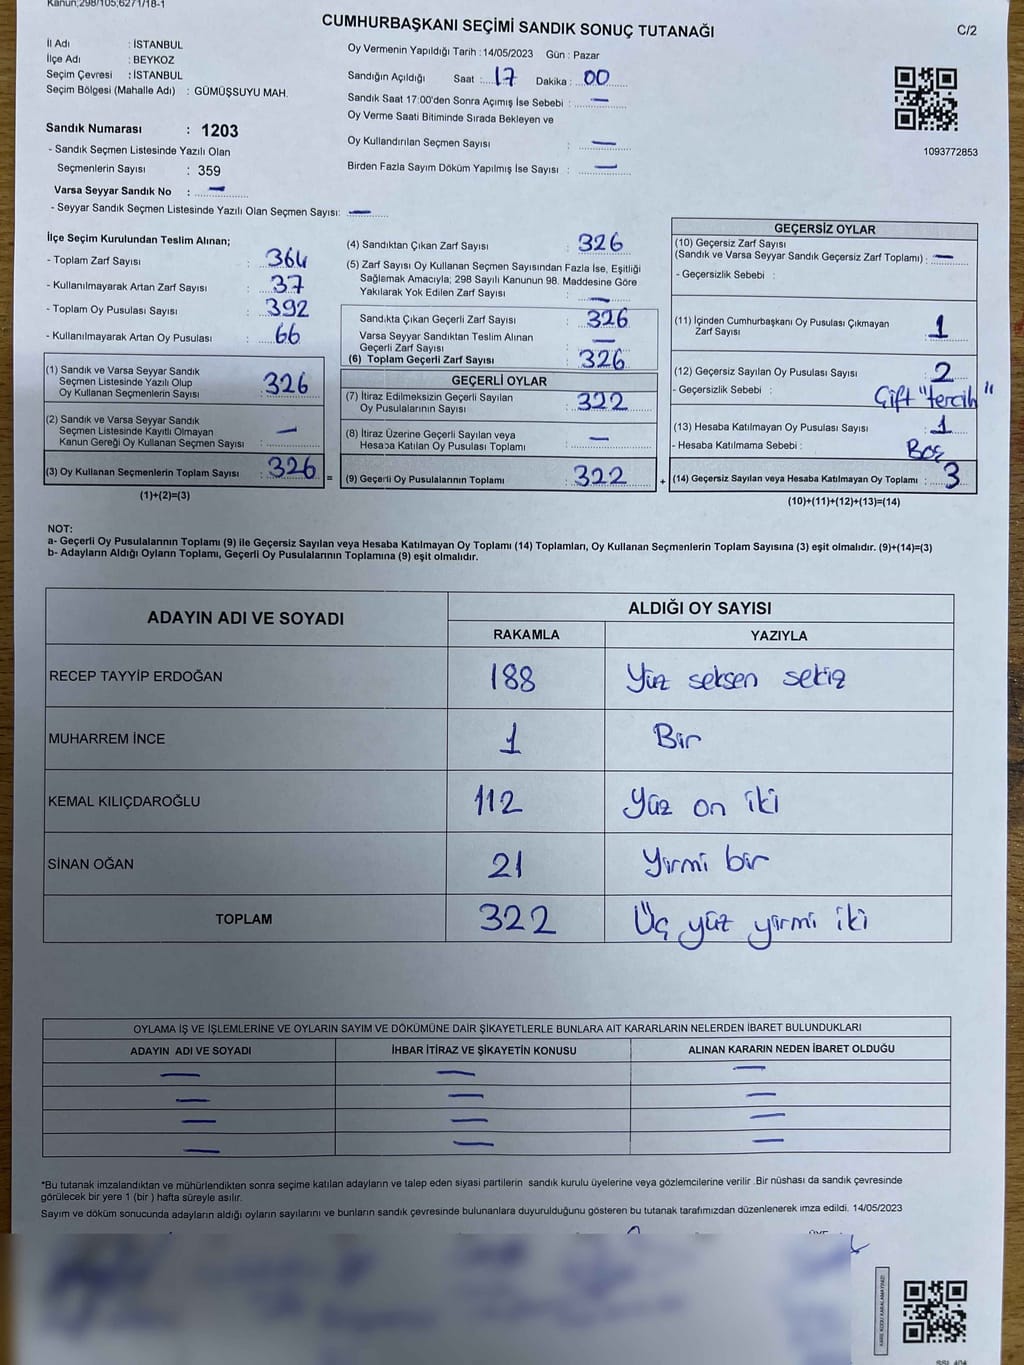 Kanun;298/105;6271/18-1
CUMHURBAŞKANI SEÇİMİ SANDIK SONUÇ TUTANAĞI
C/2
İl Adı : İSTANBUL
İlçe Adı : BEYKOZ
Seçim Çevresi : İSTANBUL
Seçim Bölgesi (Mahalle Adı) : GÜMÜŞSUYU MAH.
Sandık Numarası : 1203
- Sandık Seçmen Listesinde Yazılı Olan
Seçmenlerin Sayısı : 359
Varsa Seyyar Sandık No : —
- Seyyar Sandık Seçmen Listesinde Yazılı Olan Seçmen Sayısı: —
Oy Vermenin Yapıldığı Tarih : 14/05/2023 Gün : Pazar
Sandığın Açıldığı Saat : 17 Dakika : 00
Sandık Saat 17:00'den Sonra Açımış İse Sebebi : —
Oy Verme Saati Bitiminde Sırada Bekleyen ve
Oy Kullandırılan Seçmen Sayısı : —
Birden Fazla Sayım Döküm Yapılmış İse Sayısı : —
1093772853
İlçe Seçim Kurulundan Teslim Alınan;
- Toplam Zarf Sayısı : 364
- Kullanılmayarak Artan Zarf Sayısı : 37
- Toplam Oy Pusulası Sayısı : 392
- Kullanılmayarak Artan Oy Pusulası : 66
(1) Sandık ve Varsa Seyyar Sandık
Seçmen Listesinde Yazılı Olup
Oy Kullanan Seçmenlerin Sayısı : 326
(2) Sandık ve Varsa Seyyar Sandık
Seçmen Listesinde Kayıtlı Olmayan
Kanun Gereği Oy Kullanan Seçmen Sayısı : —
(3) Oy Kullanan Seçmenlerin Toplam Sayısı : 326 =
(1)+(2)=(3)
(4) Sandıktan Çıkan Zarf Sayısı : 326
(5) Zarf Sayısı Oy Kullanan Seçmen Sayısından Fazla İse, Eşitliği
Sağlamak Amacıyla; 298 Sayılı Kanunun 98. Maddesine Göre
Yakılarak Yok Edilen Zarf Sayısı : —
Sandıkta Çıkan Geçerli Zarf Sayısı : 326
Varsa Seyyar Sandıktan Teslim Alınan
Geçerli Zarf Sayısı : —
(6) Toplam Geçerli Zarf Sayısı : 326
GEÇERLİ OYLAR
(7) İtiraz Edilmeksizin Geçerli Sayılan
Oy Pusulalarının Sayısı : 322
(8) İtiraz Üzerine Geçerli Sayılan veya
Hesaba Katılan Oy Pusulası Toplamı : —
(9) Geçerli Oy Pusulalarının Toplamı : 322 +
GEÇERSİZ OYLAR
(10) Geçersiz Zarf Sayısı
(Sandık ve Varsa Seyyar Sandık Geçersiz Zarf Toplamı) : —
- Geçersizlik Sebebi :
(11) İçinden Cumhurbaşkanı Oy Pusulası Çıkmayan
Zarf Sayısı : 1
(12) Geçersiz Sayılan Oy Pusulası Sayısı : 2
- Geçersizlik Sebebi : Çift "tercih"
(13) Hesaba Katılmayan Oy Pusulası Sayısı : 1
- Hesaba Katılmama Sebebi : Boş
(14) Geçersiz Sayılan veya Hesaba Katılmayan Oy Toplamı : 3
(10)+(11)+(12)+(13)=(14)
NOT:
a- Geçerli Oy Pusulalarının Toplamı (9) ile Geçersiz Sayılan veya Hesaba Katılmayan Oy Toplamı (14) Toplamları, Oy Kullanan Seçmenlerin Toplam Sayısına (3) eşit olmalıdır. (9)+(14)=(3)
b- Adayların Aldığı Oyların Toplamı, Geçerli Oy Pusulalarının Toplamına (9) eşit olmalıdır.
ADAYIN ADI VE SOYADI
ALDIĞI OY SAYISI
RAKAMLA YAZIYLA
RECEP TAYYİP ERDOĞAN 188 Yüz seksen sekiz
MUHARREM İNCE 1 Bir
KEMAL KILIÇDAROĞLU 112 Yüz on iki
SİNAN OĞAN 21 Yirmi bir
TOPLAM 322 Üç yüz yirmi iki
OYLAMA İŞ VE İŞLEMLERİNE VE OYLARIN SAYIM VE DÖKÜMÜNE DAİR ŞİKAYETLERLE BUNLARA AİT KARARLARIN NELERDEN İBARET BULUNDUKLARI
ADAYIN ADI VE SOYADI İHBAR İTİRAZ VE ŞİKAYETİN KONUSU ALINAN KARARIN NEDEN İBARET OLDUĞU
— — —
— — —
— — —
— — —
*Bu tutanak imzalandıktan ve mühürlendikten sonra seçime katılan adayların ve talep eden siyasi partilerin sandık kurulu üyelerine veya gözlemcilerine verilir .Bir nüshası da sandık çevresinde
görülecek bir yere 1 (bir ) hafta süreyle asılır.
Sayım ve döküm sonucunda adayların aldığı oyların sayılarını ve bunların sandık çevresinde bulunanlara duyurulduğunu gösteren bu tutanak tarafımızdan düzenlenerek imza edildi. 14/05/2023